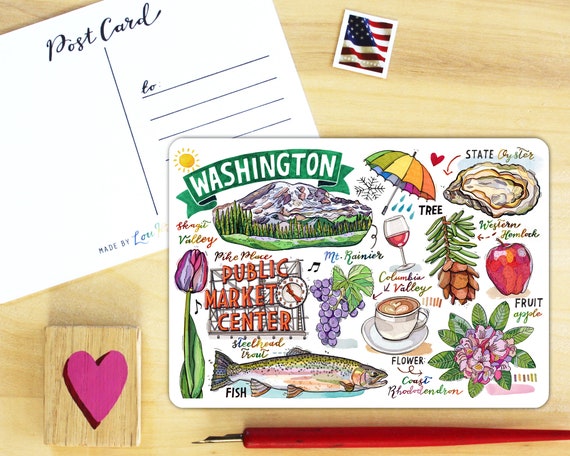 Post Card
to:
MADE BY Lou
WASHINGTON
STATE Oyster
TREE
Western
Hemlock
Skagit
Valley
Mt. Rainier
Pike Place
PUBLIC
MARKET
CENTER
Columbia
Valley
FRUIT
apple
Steelhead
trout
FISH
FLOWER:
Coast
Rhododendron